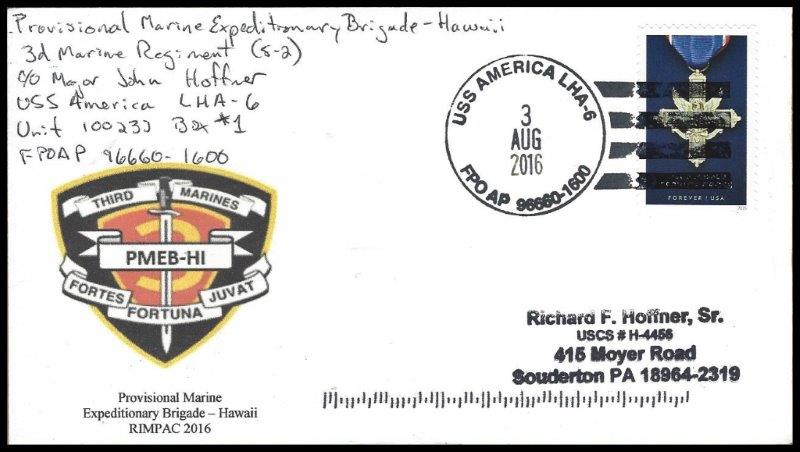 Provisional Marine Expeditionary Brigade - Hawaii
3d Marine Regiment (S-2)
c/o Major John Hoffner
USS America LHA-6
Unit 100233 Box #1
FPOAP 96660-1600
USS AMERICA LHA-6
3
AUG
2016
FPO AP 96660-1600
FOREVER / USA
THIRD MARINES
3
PMEB-HI
FORTES FORTUNA JUVAT
Provisional Marine
Expeditionary Brigade – Hawaii
RIMPAC 2016
Richard F. Hoffner, Sr.
USCS # H-4456
415 Moyer Road
Souderton PA 18964-2319